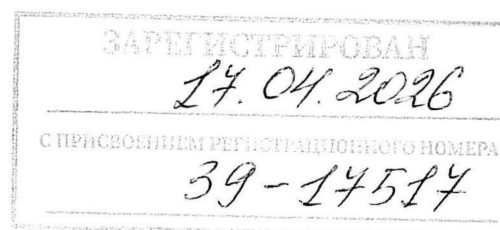 ЗАРЕГИСТРИРОВАН
17.04.2026
С ПРИСВОЕНИЕМ РЕГИСТРАЦИОННОГО НОМЕРА
39-17517